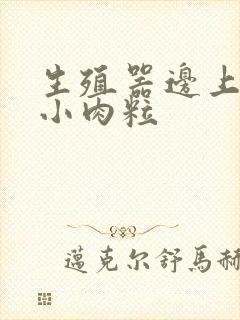 生殖器邊上
小肉粒
邁克尔舒馬赫